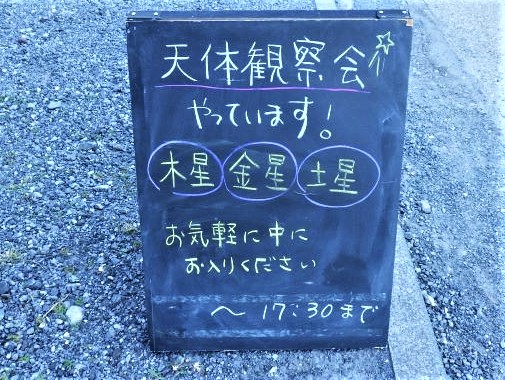 天体観察会
やっています!
木星 金星 土星
お気軽に中に
お入りください
～17:30まで